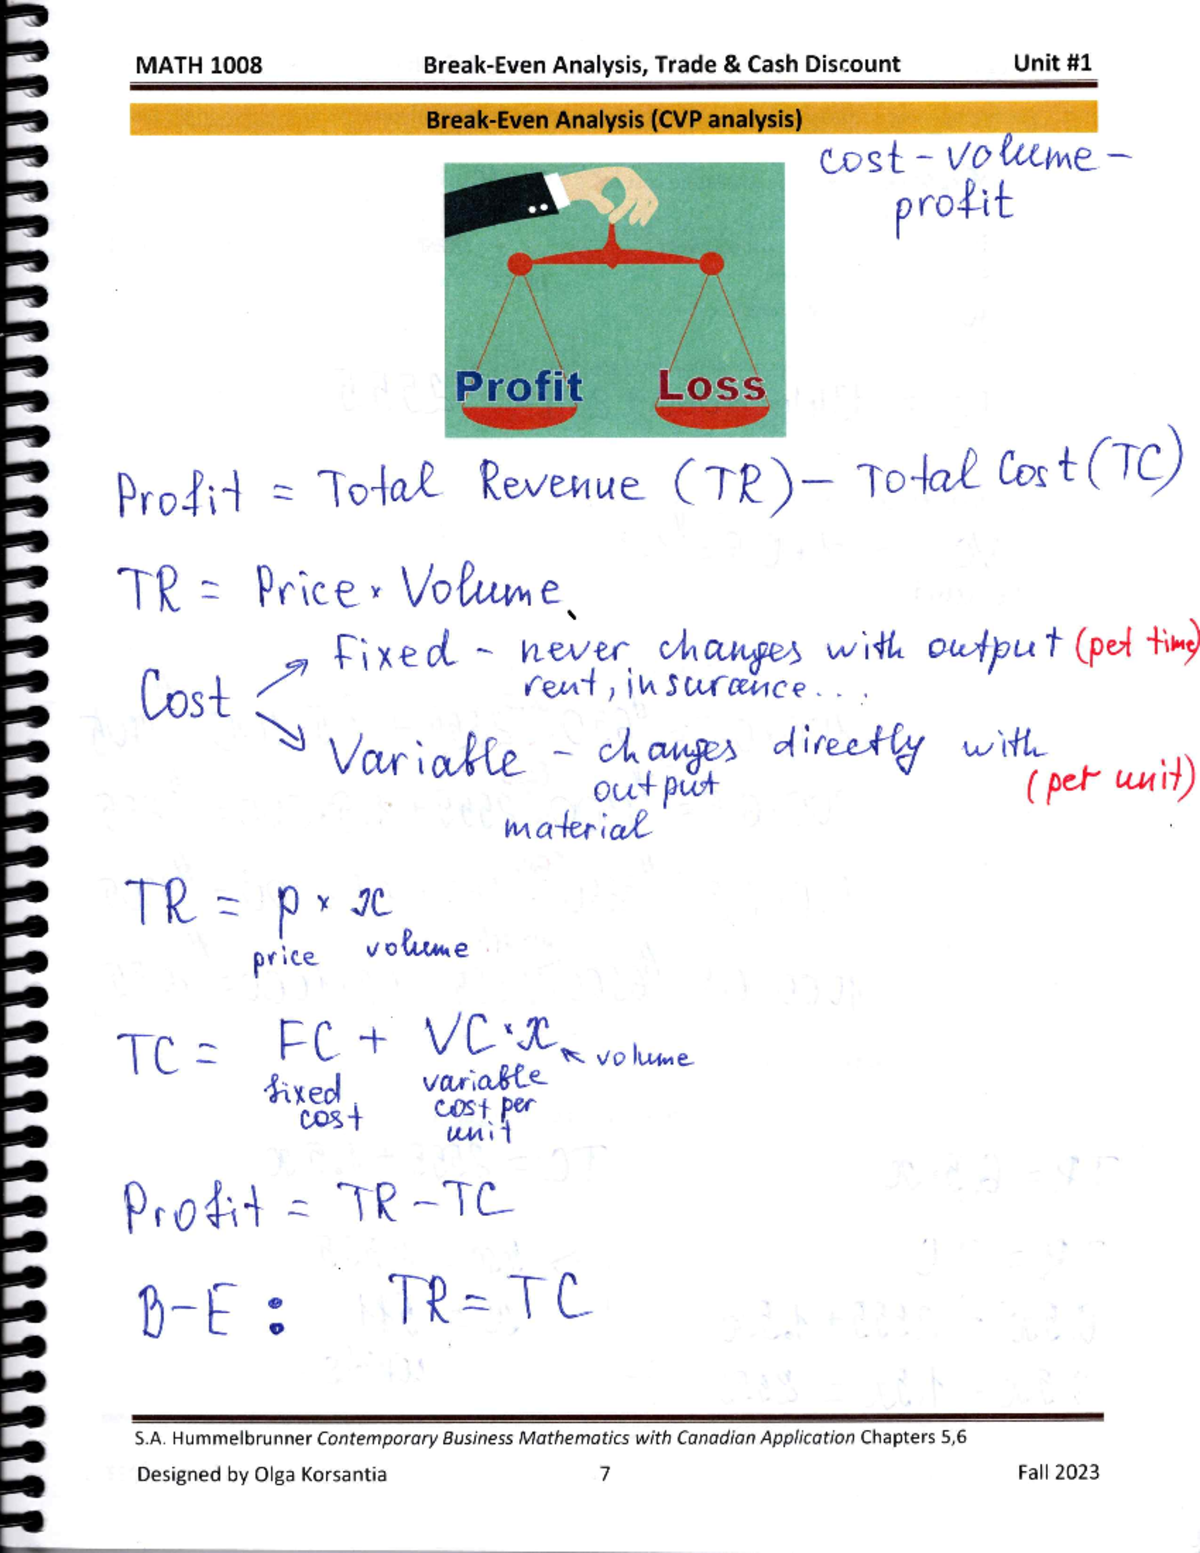 MATH 1008 Break-Even Analysis, Trade & Cash Discount Unit #1
Break-Even Analysis (CVP analysis)
cost - volume -
profit
Profit Loss
Profit = Total Revenue (TR) - Total Cost (TC)
TR = Price × Volume
Fixed - never changes with output (per time)
rent, insurance...
Cost
Variable - changes directly with
output (per unit)
material
TR = p × x
price volume
TC = FC + VC × x volume
fixed variable
cost cost per
unit
Profit = TR - TC
B-E : TR = TC
S.A. Hummelbrunner Contemporary Business Mathematics with Canadian Application Chapters 5,6
Designed by Olga Korsantia 7 Fall 2023